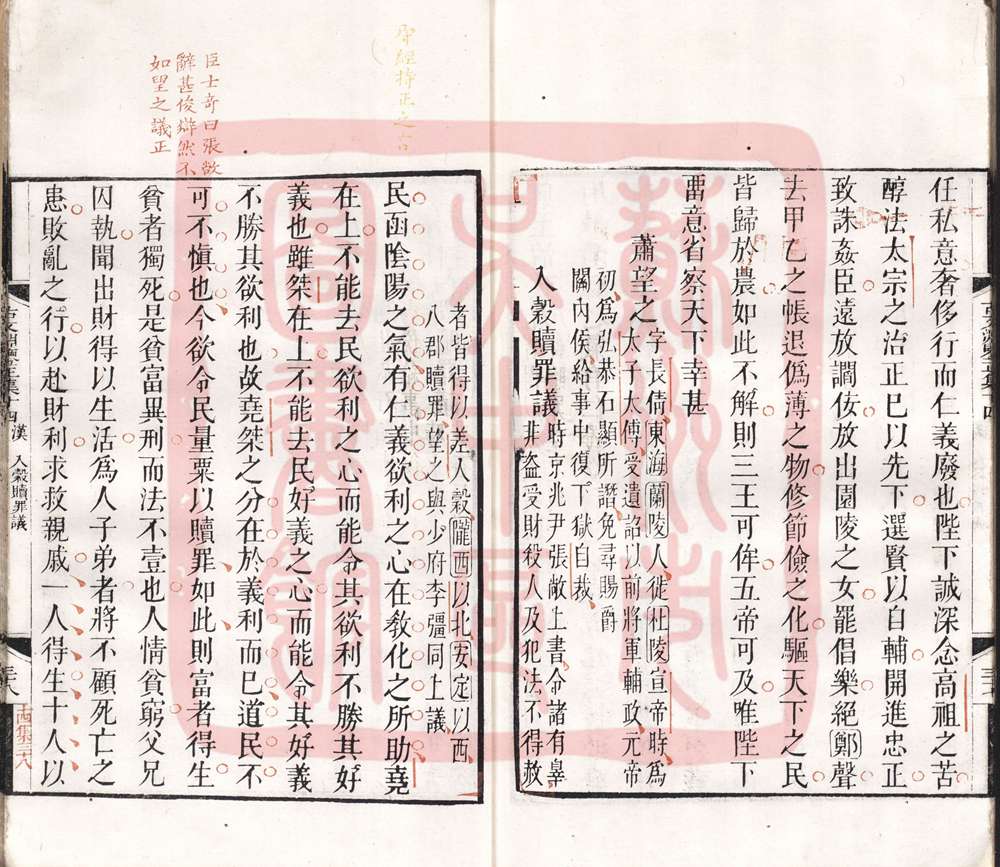 任私意奢侈行而仁義廢也陛下誠深念高祖之苦
醇法太宗之治正己以先下選賢以自輔開進忠正
致誅姦臣遠放讇佞放出園陵之女罷倡樂絕鄭聲
去甲乙之帳退偽薄之物修節儉之化驅天下之民
皆歸於農如此不解則三王可侔五帝可及唯陛下
畱意省察天下幸甚
蕭望之字長倩東海蘭陵人徙杜陵宣帝時爲
太子太傅受遺詔以前將軍輔政元帝
初爲弘恭石顯所譖免尋賜爵
關內侯給事中復下獄自裁
入穀贖罪議時京兆尹張敞上書令諸有辠
非盜受財殺人及犯法不得赦
者皆得以差入穀隴西以北安定以西
八郡贖罪望之與少府李彊同上議
民函陰陽之氣有仁義欲利之心在敎化之所助堯
在上不能去民欲利之心而能令其欲利不勝其好
義也雖桀在上不能去民好義之心而能令其好義
不勝其欲利也故堯桀之分在於義利而已道民不
可不愼也今欲令民量粟以贖罪如此則富者得生
貧者獨死是貧富異刑而法不壹也人情貧窮父兄
囚執聞出財得以生活爲人子弟者將不顧死亡之
患敗亂之行以赴財利求救親戚一人得生十人以
聖經持正之言
臣士奇曰張敞
辭甚俊辯然不
如望之議正
漢 入穀贖罪議
三八
蘇州市
吳中區
圖書館